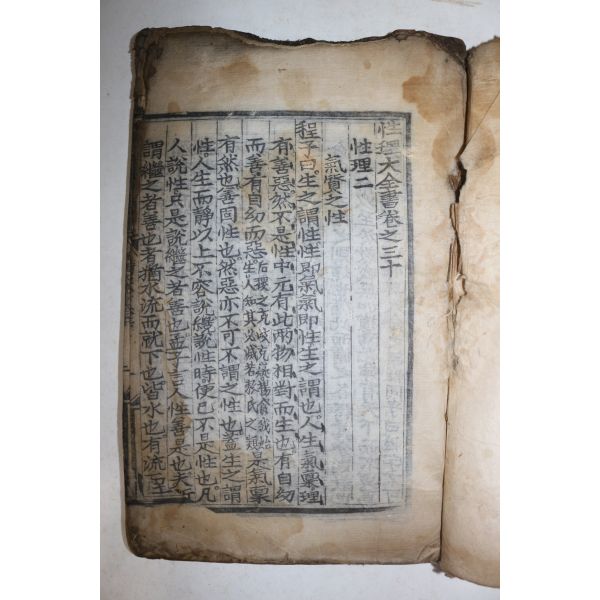 性理大全書卷之三十
性理二
氣質之性
程子曰生之謂性性即氣氣即性生之謂也人生氣稟理
有善惡然不是性中元有此兩物相對而生也有自幼
而善有自幼而惡后稷之克岐克嶷楊食我始生人知其必滅若敖氏之類是氣稟
有然也善固性也然惡亦不可不謂之性也蓋生之謂
性人生而靜以上不容說纔說性時便已不是性也凡
人說性只是說繼之者善也孟子言人性善是也夫所
謂繼之者善也者猶水流而就下也皆水也有流而至